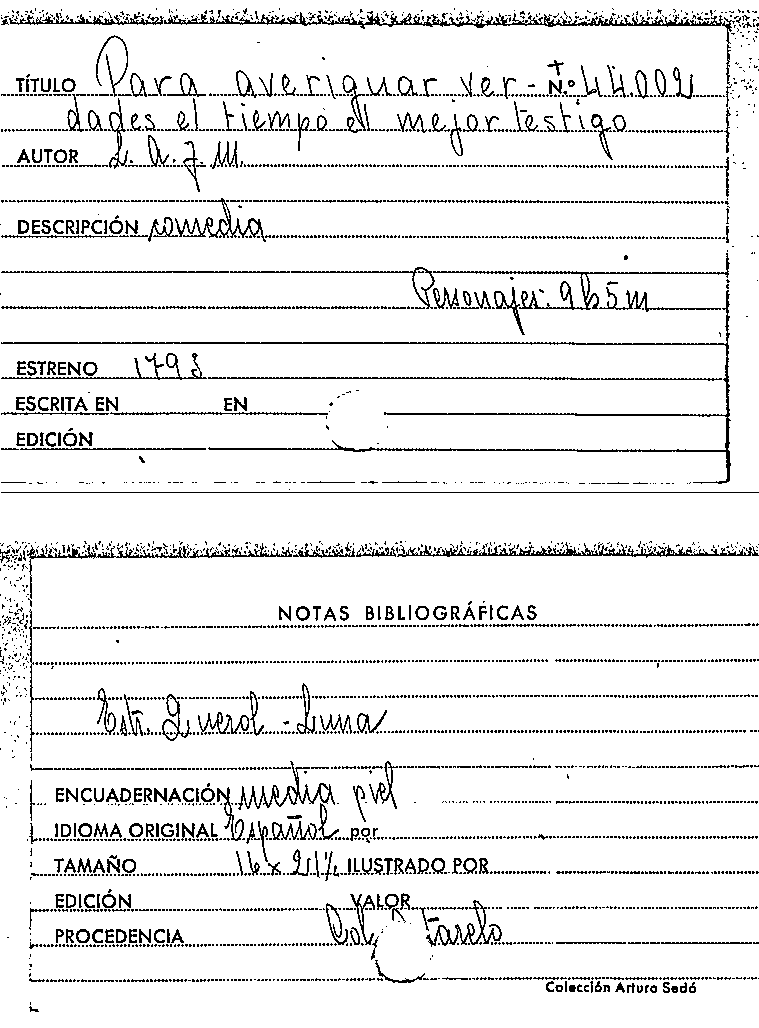 TÍTULO Para averiguar ver- N.º 44002
dades el tiempo el mejor testigo
AUTOR L. A. J. M.
DESCRIPCIÓN comedia
Personajes: 9h 5m
ESTRENO 1793
ESCRITA EN EN
EDICIÓN
NOTAS BIBLIOGRÁFICAS
Estr. Querol - Luna
ENCUADERNACIÓN media piel
IDIOMA ORIGINAL Español por
TAMAÑO 16 x 21½ ILUSTRADO POR
EDICIÓN VALOR
PROCEDENCIA
Colección Arturo Sedó